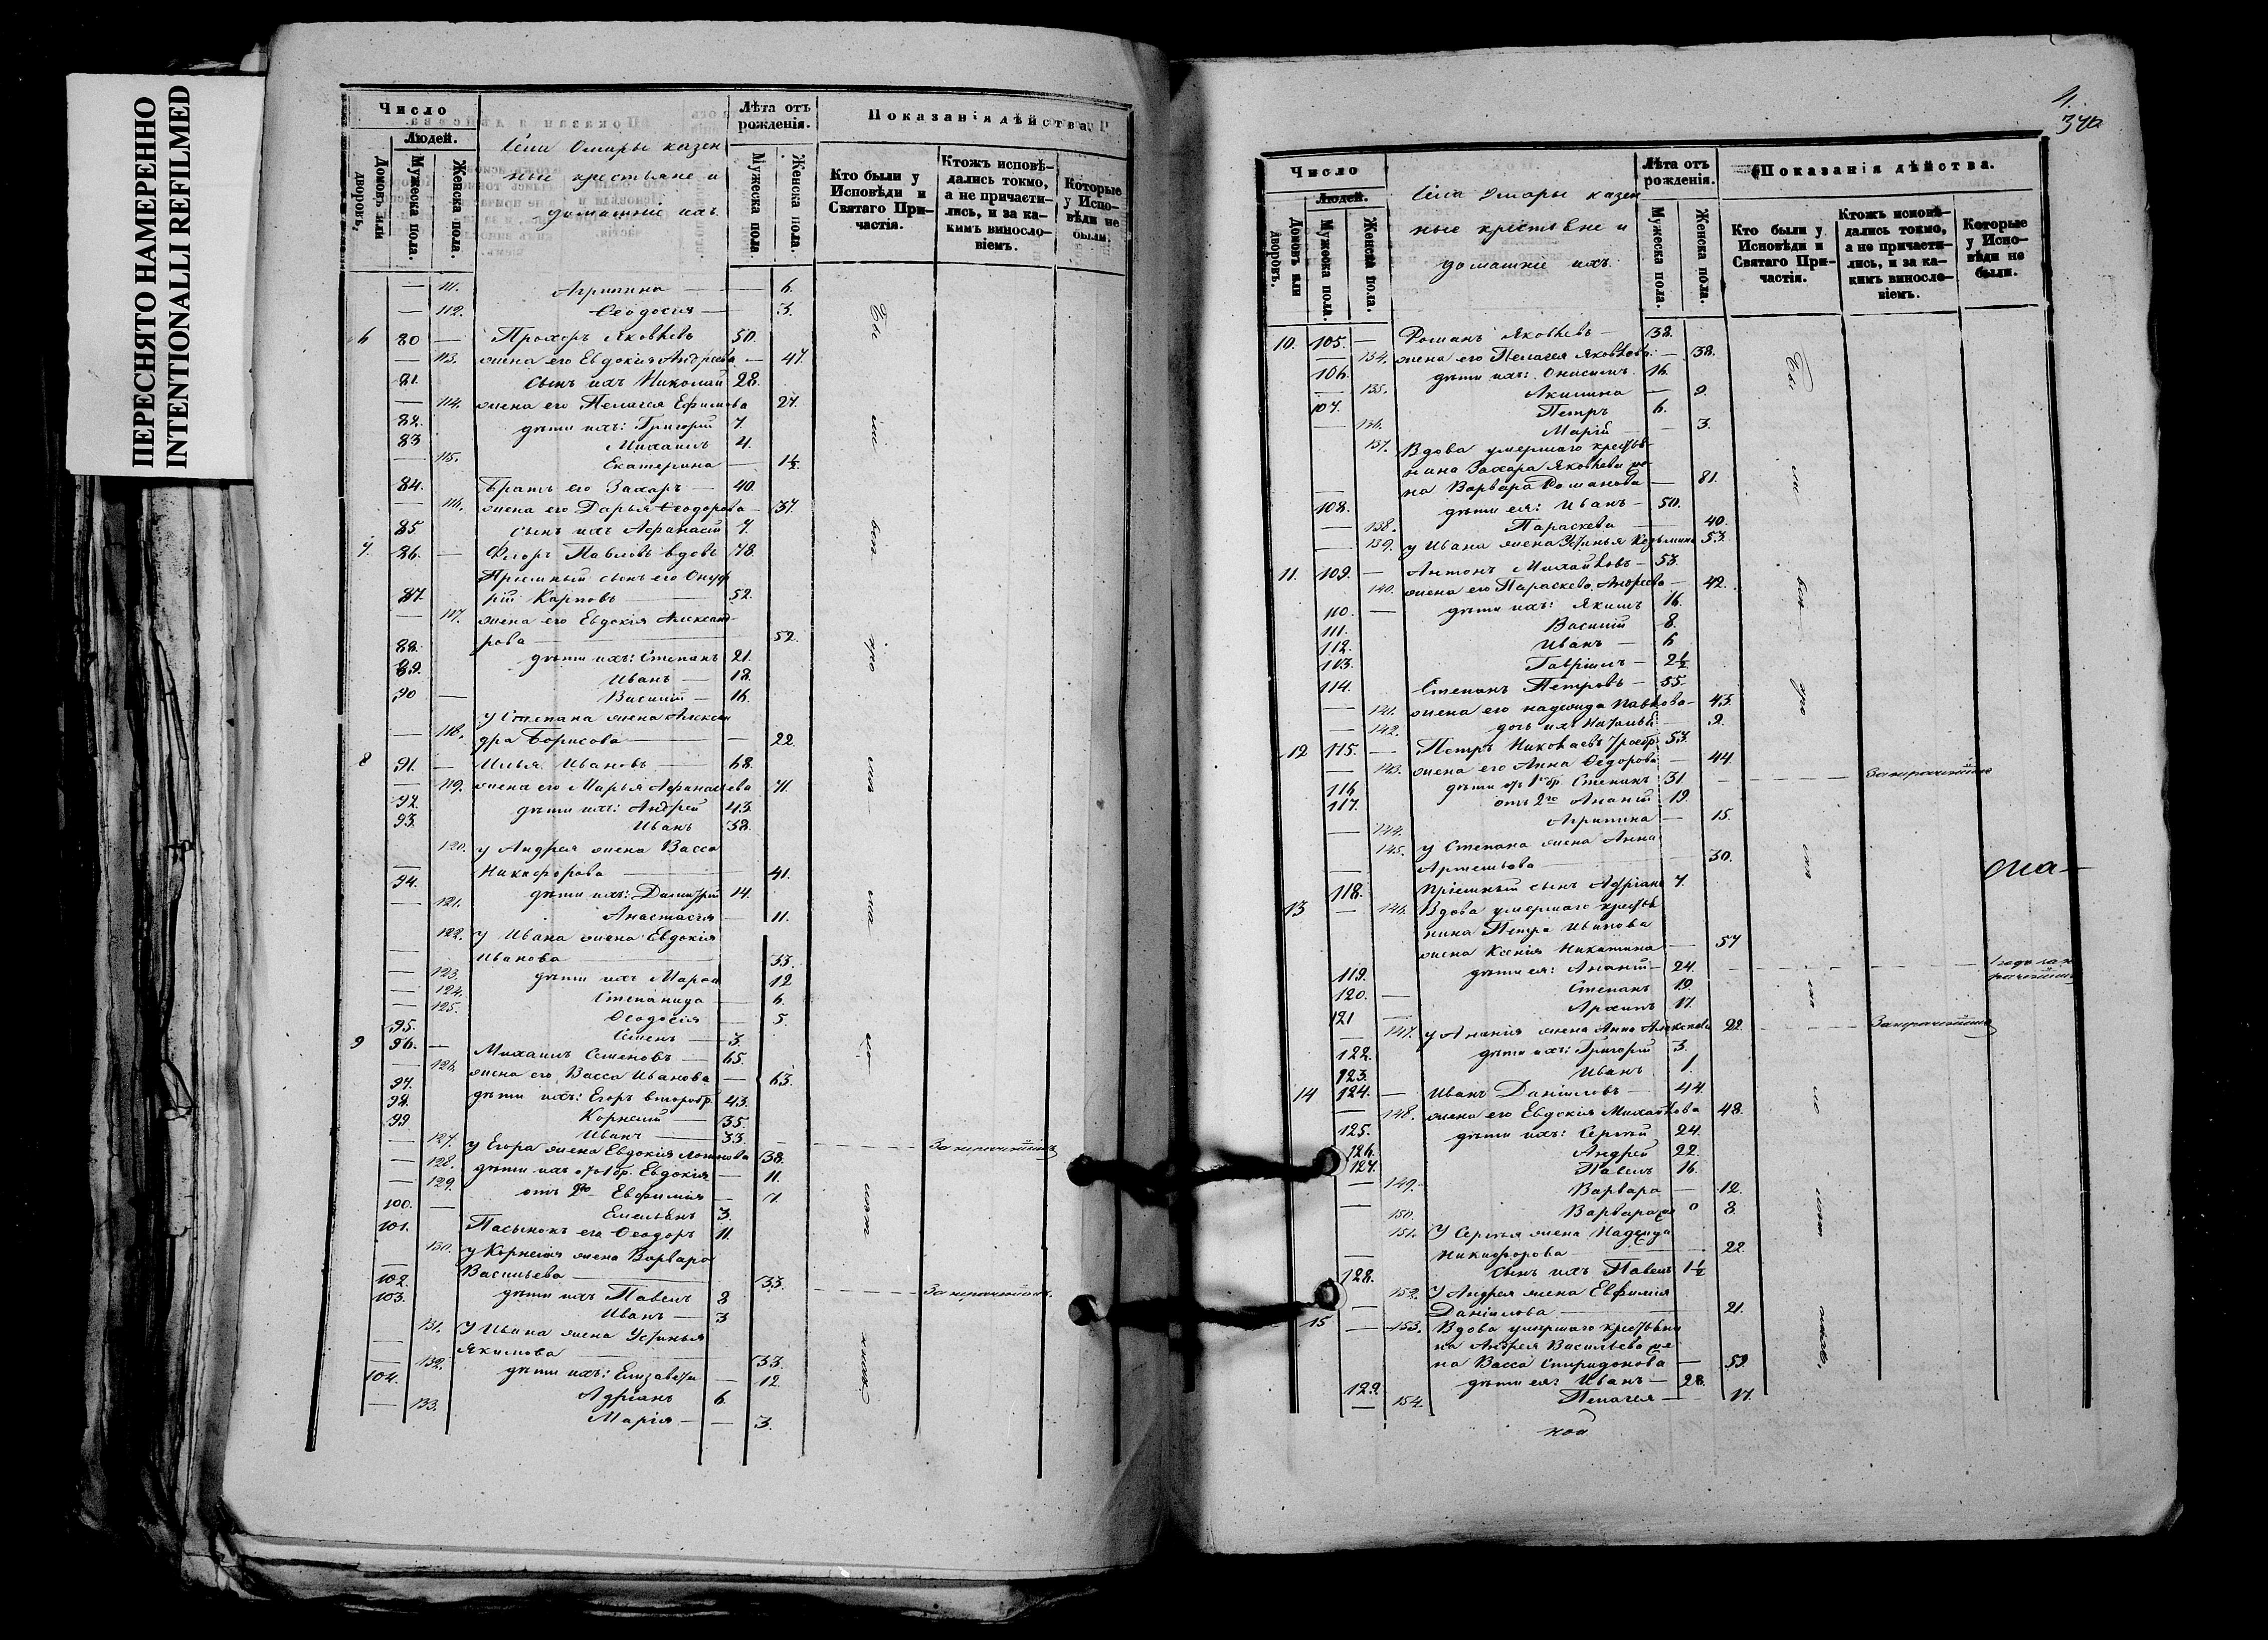 ПЕРЕСНЯТО НАМЕРЕННО
INTENTIONALLI REFILMED
Число
Людей.
Домовъ или дворовъ.
Мужеска пола.
Женска пола.
Села Омары казен
ные крестьяне и
домашніе ихъ
Лѣта отъ рожденія.
Мужеска пола.
Женска пола.
Показанія дѣйства.
Кто были у Исповѣди и Святаго Причастія.
Ктожъ исповѣдались токмо, а не причастились, и за какимъ винословіемъ.
Которые у Исповѣди не были.
— 111. Агрипина — — 6.
— 112. Ѳеодосія — 3.
6 80 — Прохоръ Яковлевъ 50.
— 113. жена его Евдокія Андреева — 47.
81. сынъ ихъ Николай 28.
— 114. жена его Пелагея Ефимова 27.
82. дѣти ихъ: Григорій 7
83 Михаилъ 4.
— 115. Екатерина — 1½
84. Братъ его Захаръ — 40.
— 116. жена его Дарья Ѳеодорова — 37.
85 сынъ ихъ Афанасій 7.
7. 86. — Флоръ Павловъ вдовъ 78.
Пріемный сынъ его Онуф
87. рій Карповъ — 52.
— 117. жена его Евдокія Александ-
рова — 52.
88. дѣти ихъ: Степанъ 21.
89. Иванъ — 18.
90 — Василій — 16.
у Степана жена Алексан
— 118. дра Борисова — — 22.
8 91. — Илья Ивановъ — 68.
— 119. жена его Марья Афанасьева 71.
92. дѣти ихъ: Андрей 43.
93. Иванъ 38.
120. у Андрея жена Васса
— Никифорова — 41.
94. дѣти ихъ: Димитрій 14.
— 121. Анастасія — 11.
122. у Ивана жена Евдокія
— Иванова — 33.
— 123. дѣти ихъ Марѳа 12
— 124. Степанида — 6.
— 125. Ѳеодосія — 5.
95. Семенъ — 3.
9 96. — Михаилъ Семеновъ — 65.
— 126. жена его Васса Иванова — 63.
97. дѣти ихъ: Егоръ второбр. 43.
98. Корнилій — 35.
99 Иванъ — 33.
— 127. у Егора жена Евдокія Логинова 38. За нерачѣніемъ
— 128. дѣти ихъ отъ 1 бр. Евдокія — 11.
— 129. отъ 2го Евфимія — 7.
100. — Емельянъ 3.
101. Пасынокъ его Ѳеодоръ 11.
130. у Корнилія жена Варвара
— Васильева — 33. За нерачѣніемъ.
102. дѣти ихъ Павелъ 8
103. Иванъ — 3
131. У Ивана жена Устинья
— Якимова — 33.
— 132. дѣти ихъ: Елизавета — 12.
104. Адріанъ 6.
— 133. Марія — — 3.
4.
Число
Людей.
Домовъ или дворовъ.
Мужеска пола.
Женска пола.
Села Омары казен
ные крестьяне и
домашніе ихъ
Лѣта отъ рожденія.
Мужеска пола.
Женска пола.
Показанія дѣйства.
Кто были у Исповѣди и Святаго Причастія.
Ктожъ исповѣдались токмо, а не причастились, и за какимъ винословіемъ.
Которые у Исповѣди не были.
10. 105. — Романъ Яковлевъ — 38.
— 134. жена его Пелагея Яковлев: — 38.
106. дѣти ихъ: Онисимъ. 16.
— 135. Акилина — 9.
107. Петръ 6.
— 136. Марія — 3.
137. Вдова умершаго крестья-
нина Захара Яковлева же-
— на Варвара Романова — 81.
108. дѣти ея: Иванъ — 50.
— 138. Параскева — 40.
— 139. у Ивана жена Устинья Козьмина 53.
11. 109. — Антонъ Михайловъ — 53.
140. жена его Параскева Андреева — 42.
110. — дѣти ихъ: Якимъ 16.
111. Василій 8.
112. Иванъ — 6
113. Гавріилъ — 2½
114. Степанъ Петровъ — 55.
— 141. жена его Надежда Павлова — 43.
— 142. дочь ихъ Наталья — 9.
12 115. — Петръ Николаевъ троебр. 53.
— 143. жена его Анна Ѳедорова — 44.
116 дѣти отъ 1 бр. Степанъ 31 За нерачѣніемъ
117. отъ 2го Ананій 19.
— 144. Агрипина — 15.
145. у Степана жена Анна
— Артемьева — 30. она —
118. Пріемный сынъ Адріанъ 7.
13 — 146. Вдова умершаго крестья
нина Петра Иванова
жена Ксенія Никитина — 57
119. дѣти ея: Ананій — 24.
120. — Степанъ 19.
121 — Архипъ 17.
— 147. у Ананія жена Анна Алексѣева 22. За нерачѣніемъ
122. дѣти ихъ: Григорій 3.
123. Иванъ 1.
14 124. — Иванъ Даніиловъ — 44.
— 148. жена его Евдокія Михайлова 48.
125. дѣти ихъ: Сергѣй 24.
126. Андрей 22.
127. Павелъ 16.
— 149. Варвара — 12.
— 150. Варвара же 8.
151. У Сергѣя жена Надежда
— Никифорова — 22.
128. сынъ ихъ Павелъ 1½
152. У Андрея жена Евфимія
— Даніилова — 21.
15 — 153. Вдова умершаго крестьяни
на Андрея Васильева же
на Васса Спиридонова — 59.
129. дѣти ея: Иванъ — 28.
— 154. Пелагея — 17.